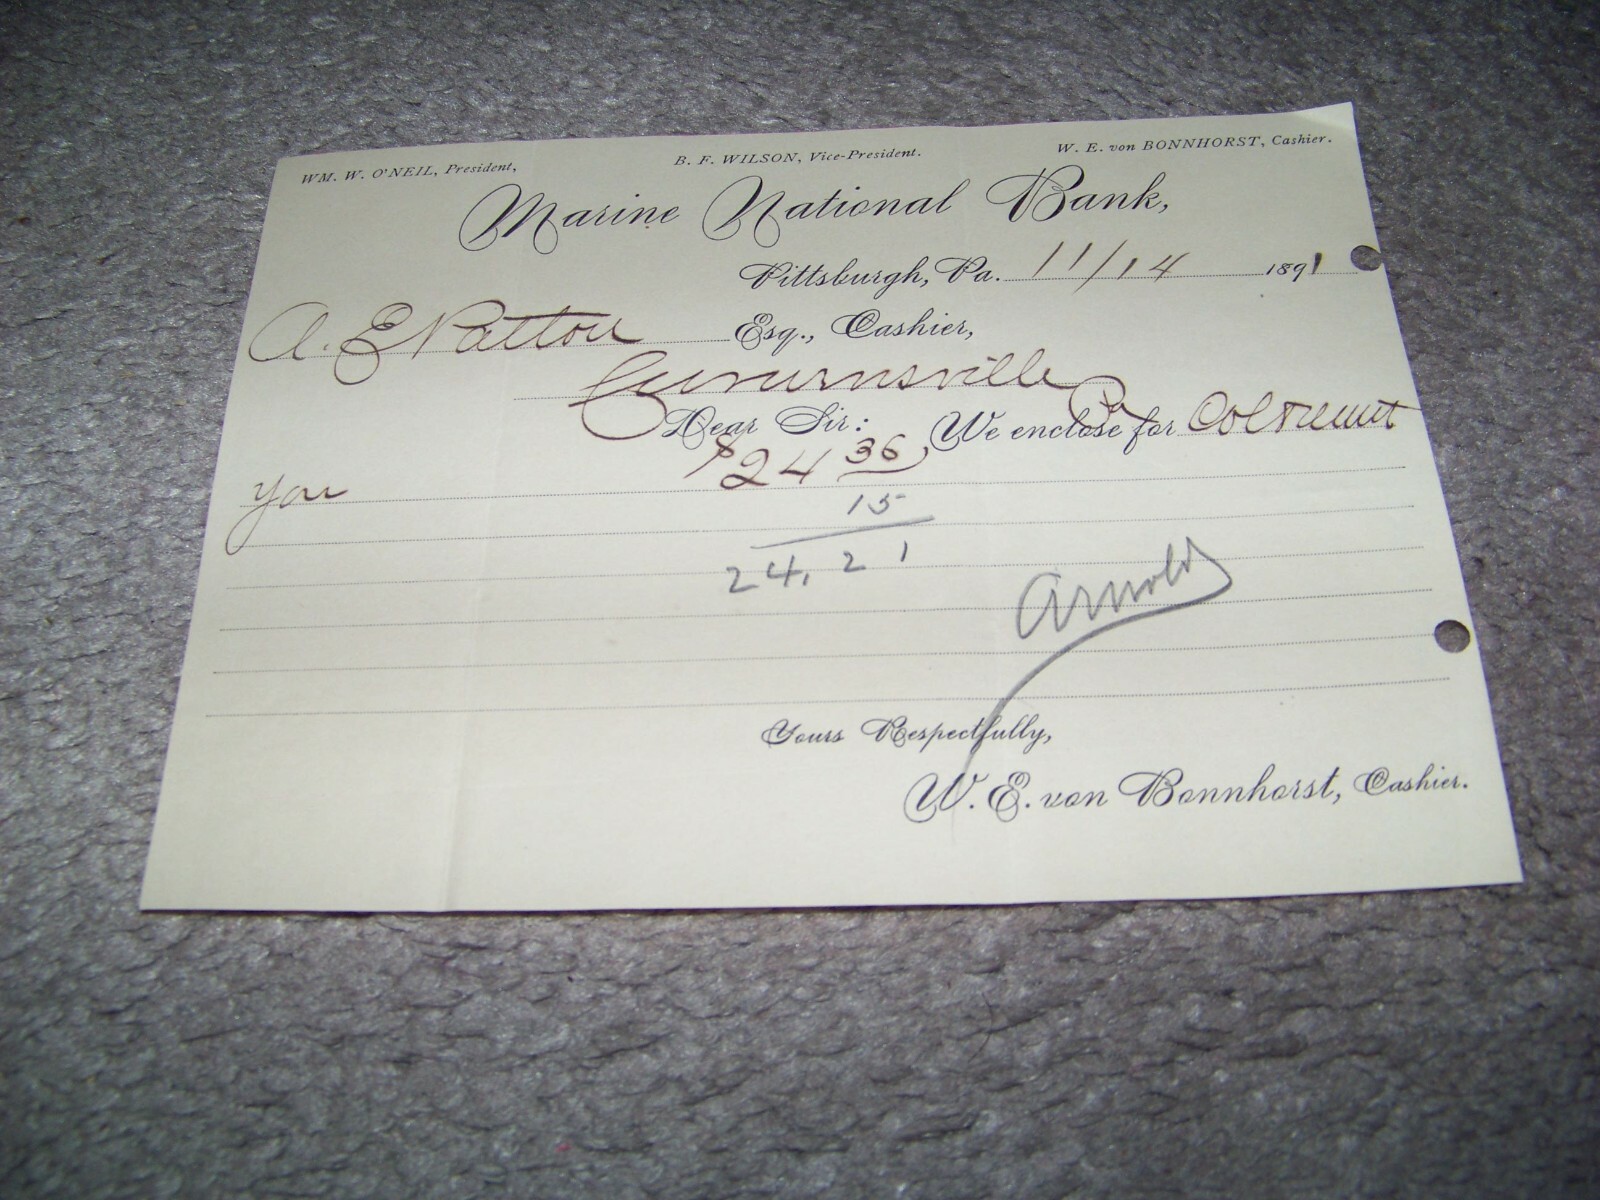 WM. W. O'NEIL, President,
B. F. WILSON, Vice-President.
W. E. von BONNHORST, Cashier.
Marine National Bank,
Pittsburgh, Pa. 11/14 1891
A. E Patton Esq., Cashier,
Curwensville Pa
Dear Sir: We enclose for Col &
you $24 36
15
24.21
Arnold
Yours Respectfully,
W. E. von Bonnhorst, Cashier.